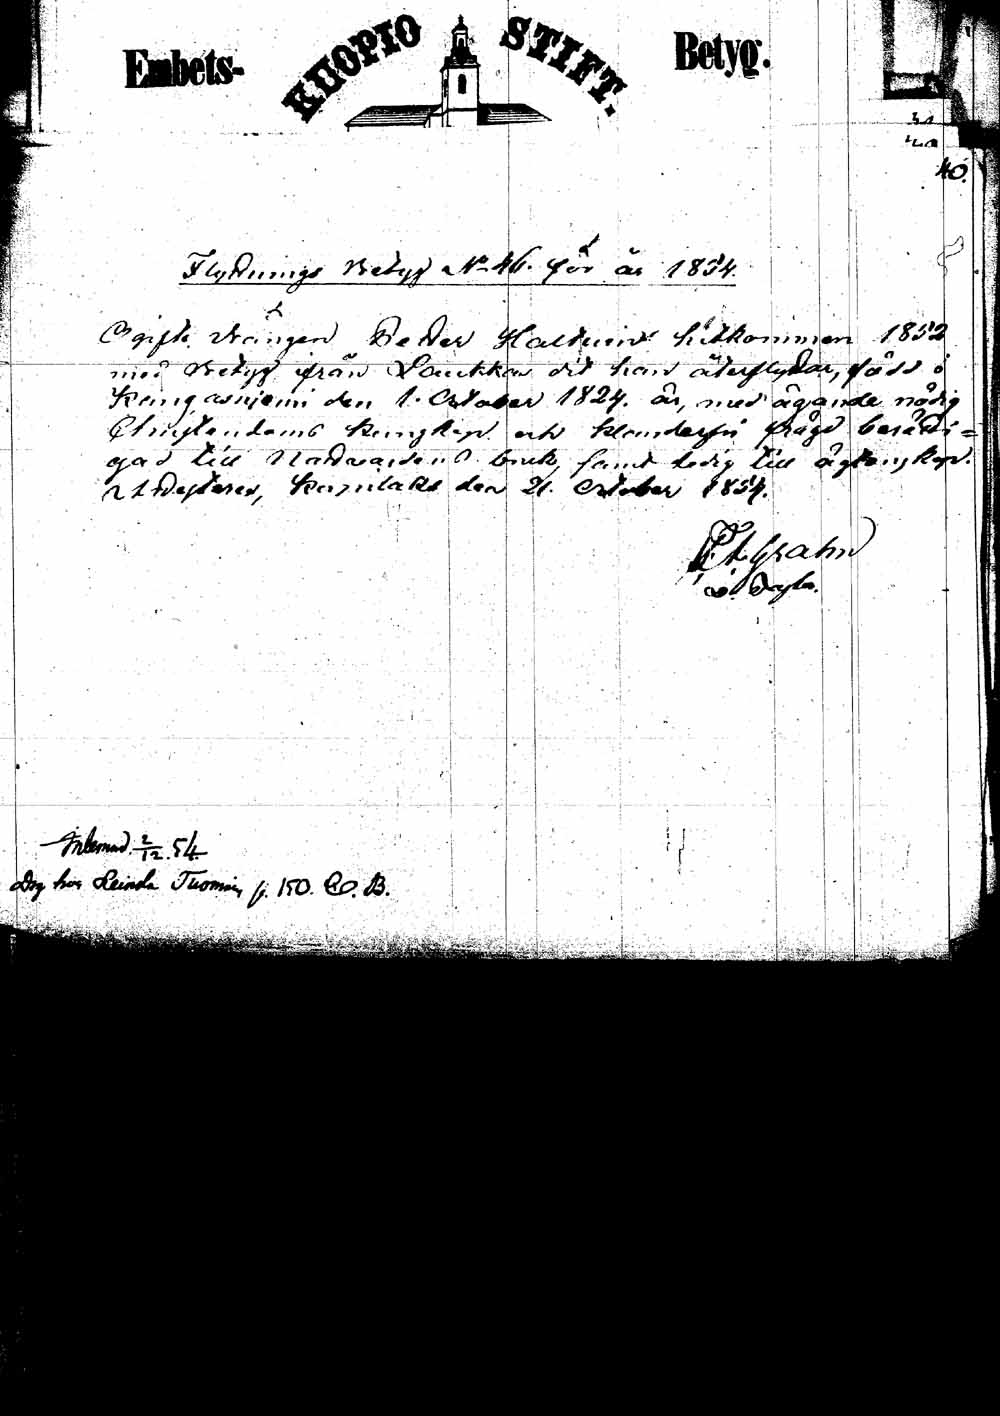 Embets- KUOPIO STIFT. Betyg.
40.
Flyttnings Betyg No 46. för år 1854.
Ogifte Drängen Petter Halttuin hitkommen 1852
med Betyg från Laukka dit han återflyttar, född i
Kangasniemi den 1. October 1824. år, med ägande nödig
Christendoms kunskap och klanderfri frägd berätti=
gad till Nattvardens bruk, samt ledig till ägtenskap.
Attesterar, den 21. October 1854.
Grahn
Inlemnad 2/12. 54.
Drg hos Leinola Tuomas p. 150. C. B.